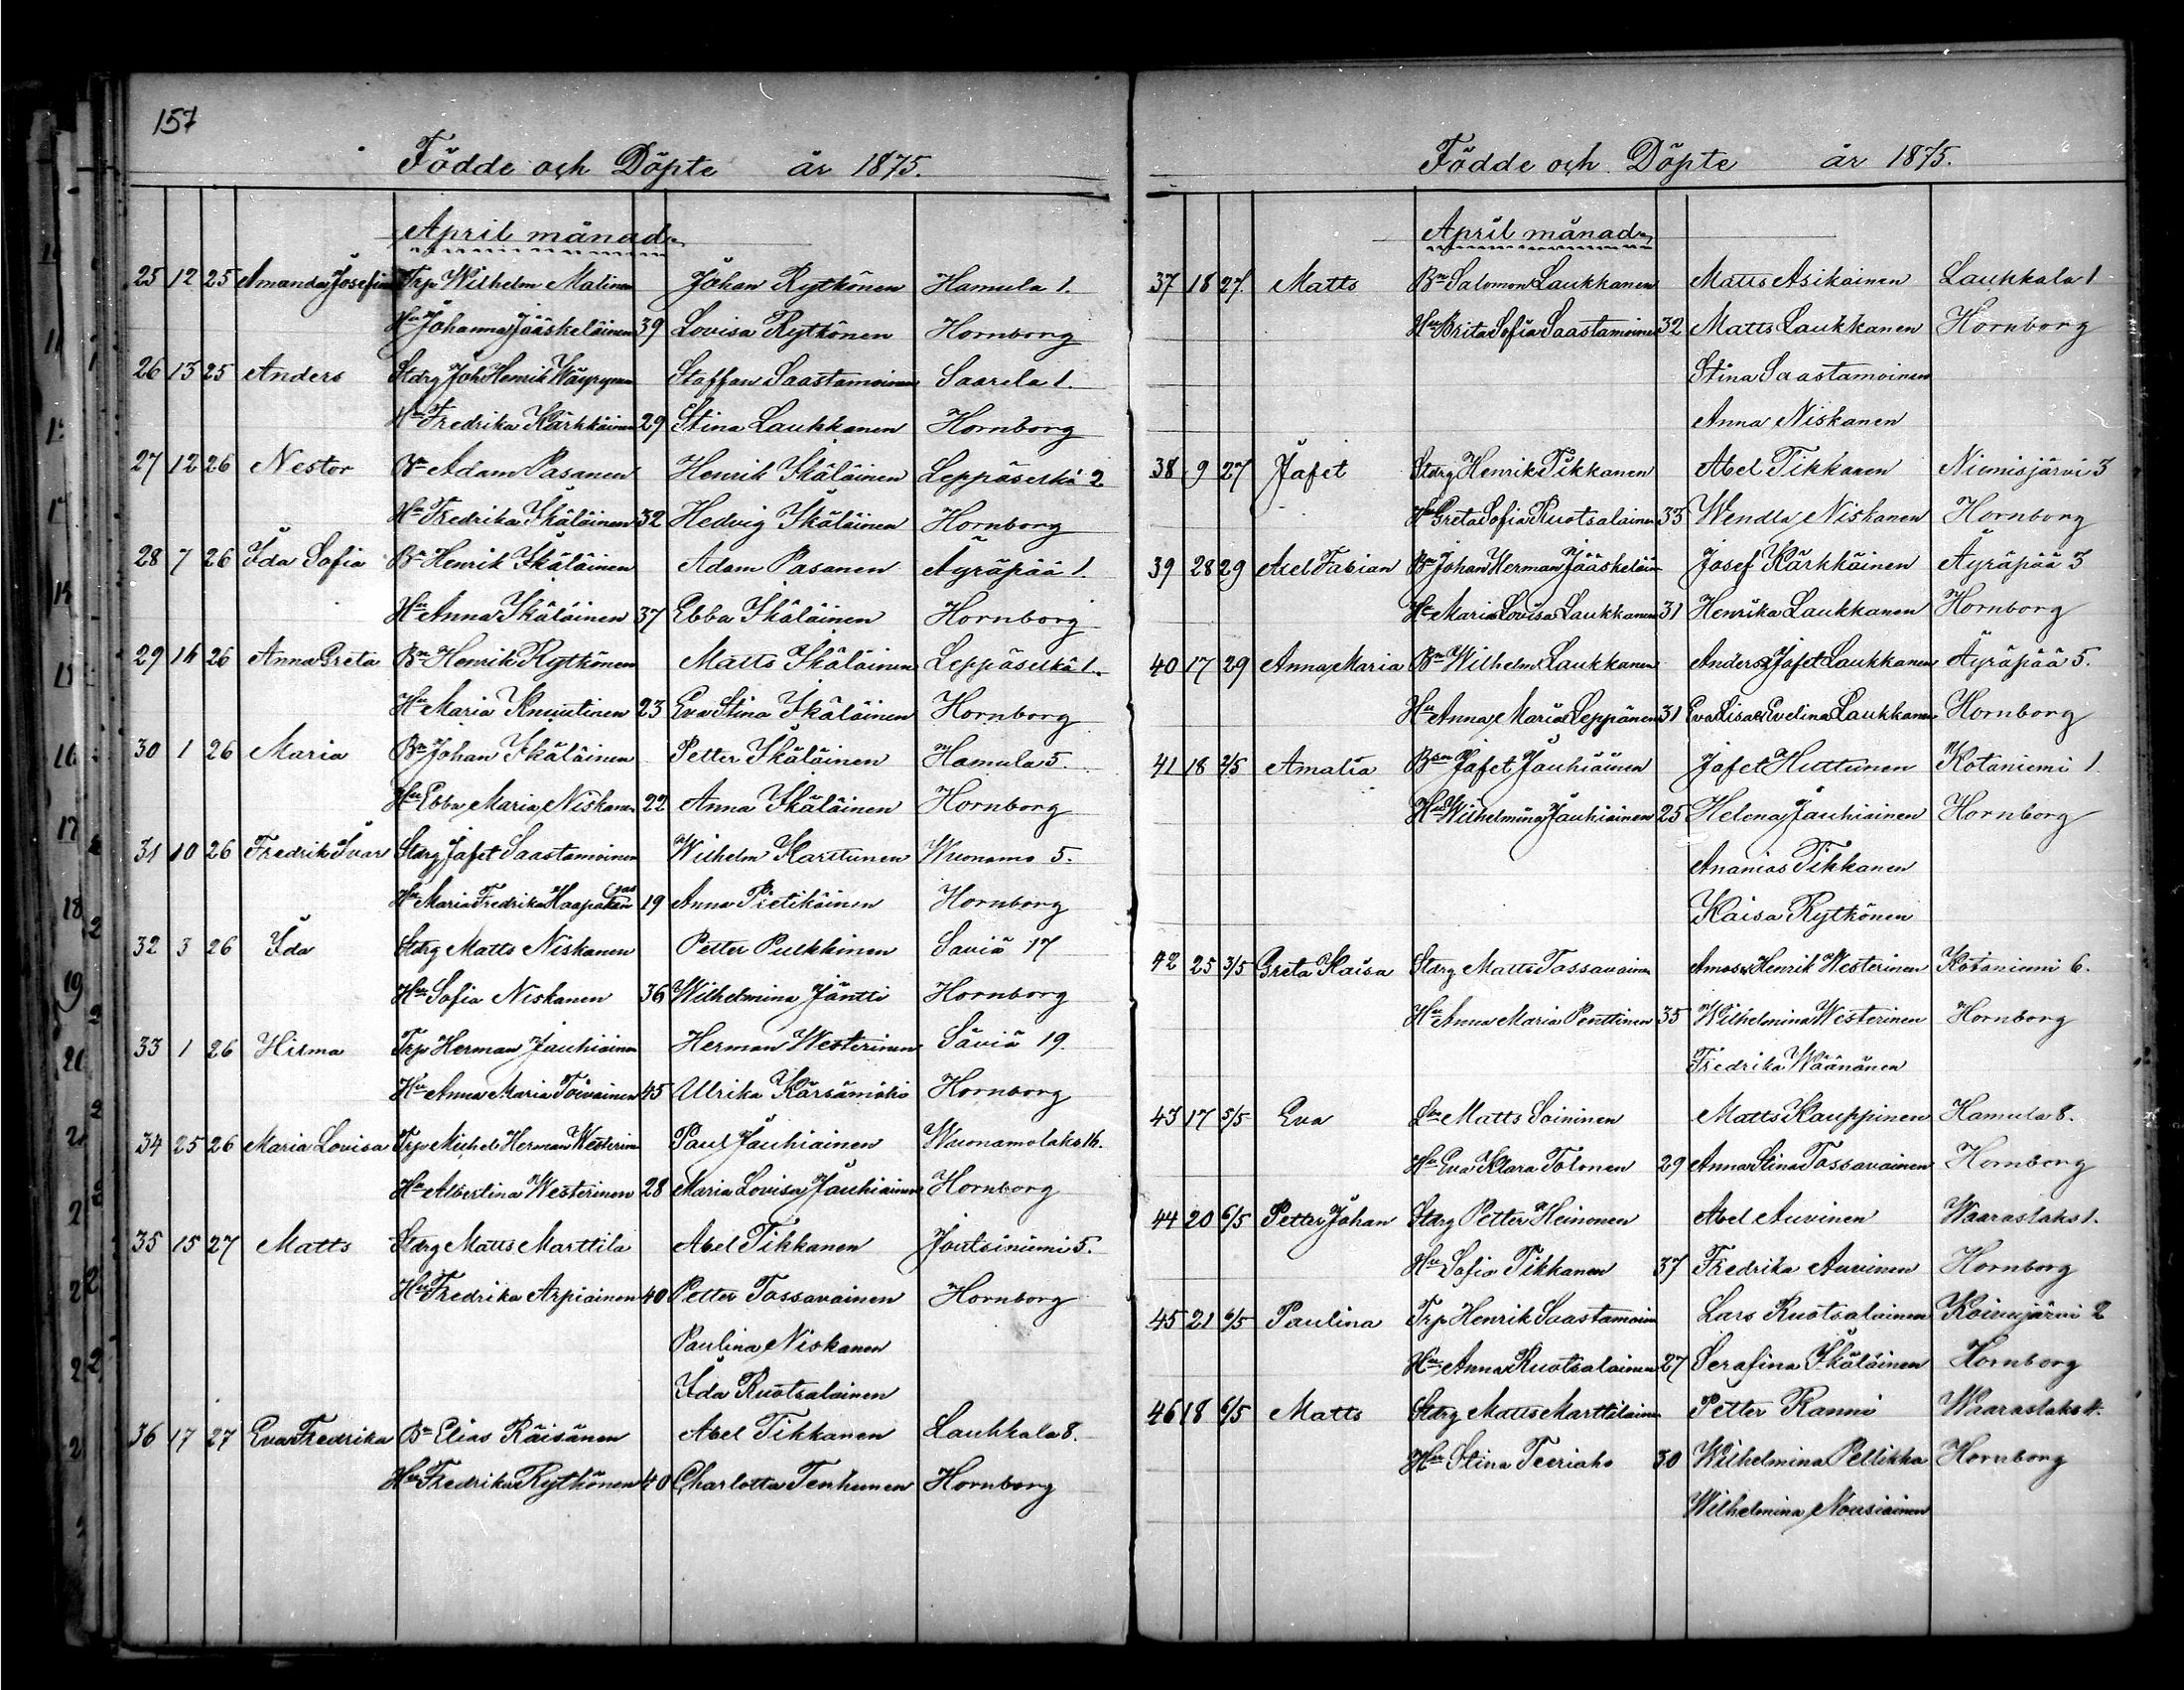 157
Födde och Döpte år 1875.
April månad.
25 12 25 Amanda Josefina Trp Wilhelm Malinen Johan Rytkönen Hamula 1.
Hu Johanna Jääskeläinen 39 Lovisa Rytkönen Hornborg
26 13 25 Anders Stdrg Joh Henrik Wäyrynen Staffan Saastamoinen Saarela 1.
Hu Fredrika Kärkkäinen 29 Stina Laukkanen Hornborg
27 12 26 Nestor Bn Adam Pasanen Henrik Ikäläinen Leppäselkä 2
Hu Fredrika Ikäläinen 32 Hedvig Ikäläinen Hornborg
28 7 26 Ida Sofia Bn Henrik Ikäläinen Adam Pasanen Äyräpää 1.
Hu Anna Ikäläinen 37 Ebba Ikäläinen Hornborg
29 16 26 Anna Greta Bn Henrik Rytkönen Matts Ikäläinen Leppäselkä 1.
Hu Maria Knuutinen 23 Eva Stina Ikäläinen Hornborg
30 1 26 Maria Bn Johan Ikäläinen Petter Ikäläinen Hamula 5.
Hu Ebba Maria Niskanen 22 Anna Ikäläinen Hornborg
31 10 26 Fredrik Ivar Stdrg Jafet Saastamoinen Wilhelm Karttunen Wuonamo 5.
Hu Maria Fredrika 19 Anna Pietikäinen Hornborg
32 3 26 Ida Stdrg Matts Niskanen Petter Pulkkinen Saviä 17
Hu Sofia Niskanen 36 Wilhelmina Jäntti Hornborg
33 1 26 Hilma Trp Herman Jauhiainen Herman Westerinen Säviä 19.
Hu Anna Maria Toivainen 45 Ulrika Kärsämäki Hornborg
34 25 26 Maria Lovisa Trp Michel Herman Westerinen Paul Jauhiainen Wuonamolaks 16.
Hu Albertina Westerinen 28 Maria Lovisa Jauhiainen Hornborg
35 15 27 Matts Stdrg Matts Marttila Abel Tikkanen Joutsiniemi 5.
Hu Fredrika Arpiainen 40 Petter Tossavainen Hornborg
Paulina Niskanen
Ida Ruotsalainen
36 17 27 Eva Fredrika Bn Elias Räisänen Abel Tikkanen Laukkala 8.
Hu Fredrika Rytkönen 40 Charlotta Tenhunen Hornborg
Födde och Döpte år 1875.
April månad.
37 18 27. Matts Bn Salomon Laukkanen Matts Asikainen Laukkala 1
Hu Brita Sofia Saastamoinen 32 Matts Laukkanen Hornborg
Stina Saastamoinen
Anna Niskanen
38 9 27 Jafet Stdrg Henrik Tikkanen Abel Tikkanen Niemisjärvi 3
Hu Greta Sofia Ruotsalainen 33 Wendla Niskanen Hornborg
39 28 29 Axel Fabian Bn Johan Herman Jääskeläin Josef Kärkkäinen Äyräpää 3
Hu Maria Lovisa Laukkanen 31 Henrika Laukkanen Hornborg
40 17 29 Anna Maria Bn Wilhelm Laukkanen Anders & Jafet Laukkanen Äyräpää 5.
Hu Anna Maria Leppänen 31 Eva Lisa & Evelina Laukkanen Hornborg
41 18 2/5 Amalia Bson Jafet Jauhiainen Jafet Huttunen Kotaniemi 1
Hu Wilhelmina Jauhiainen 25 Helena Jauhiainen Hornborg
Ananias Tikkanen
Kaisa Rytkönen
42 25 3/5 Greta Kaisa Stdrg Matts Tossavainen Amos & Henrik Westerinen Kotaniemi 6.
Hu Anna Maria Penttinen 35 Wilhelmina Westerinen Hornborg
Fredrika Wäänänen
43 17 5/5 Eva Matts Soininen Matts Kauppinen Hamula 8.
Hu Eva Klara Tolonen 29 Anna Stina Tossavainen Hornborg
44 20 6/5 Petter Johan Stdrg Petter Heinonen Abel Auvinen Waaraslaks 1.
Hu Sofia Tikkanen 37 Fredrika Auvinen Hornborg
45 21 6/5 Paulina Trp Henrik Saastamoinen Lars Ruotsalainen Koivujärvi 2
Hu Anna Ruotsalainen 27 Serafina Ikäläinen Hornborg
46 18 6/5 Matts Stdrg Matts Marttilainen Petter Ranni Waaraslaks 4.
Hu Stina Teeriaho 30 Wilhelmina Pellikka Hornborg
Wilhelmina Nousiainen